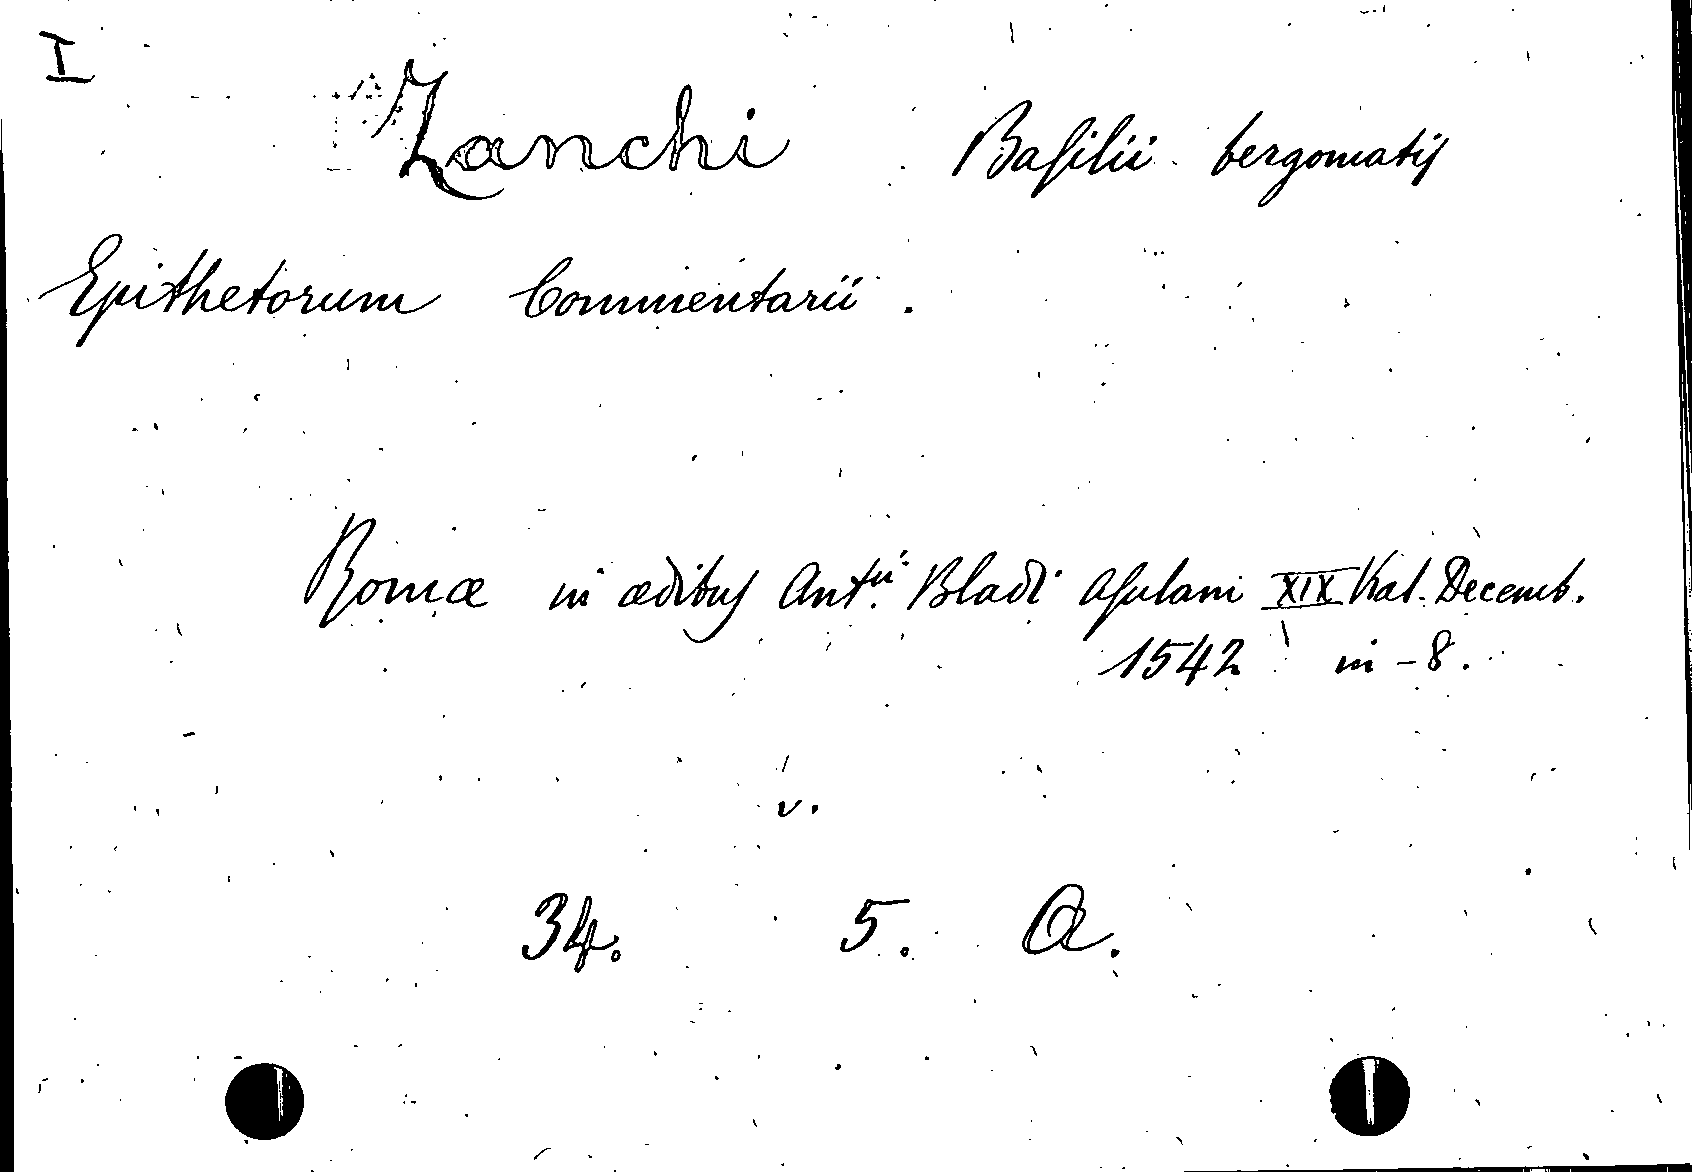 I
Zanchi Basilii bergomatis
Epithetorum Commentarii.
Romæ in ædibus Ant.ii Bladi Asulani XIX Kal. Decemb.
1542 in-8.
v.
34. 5. A.